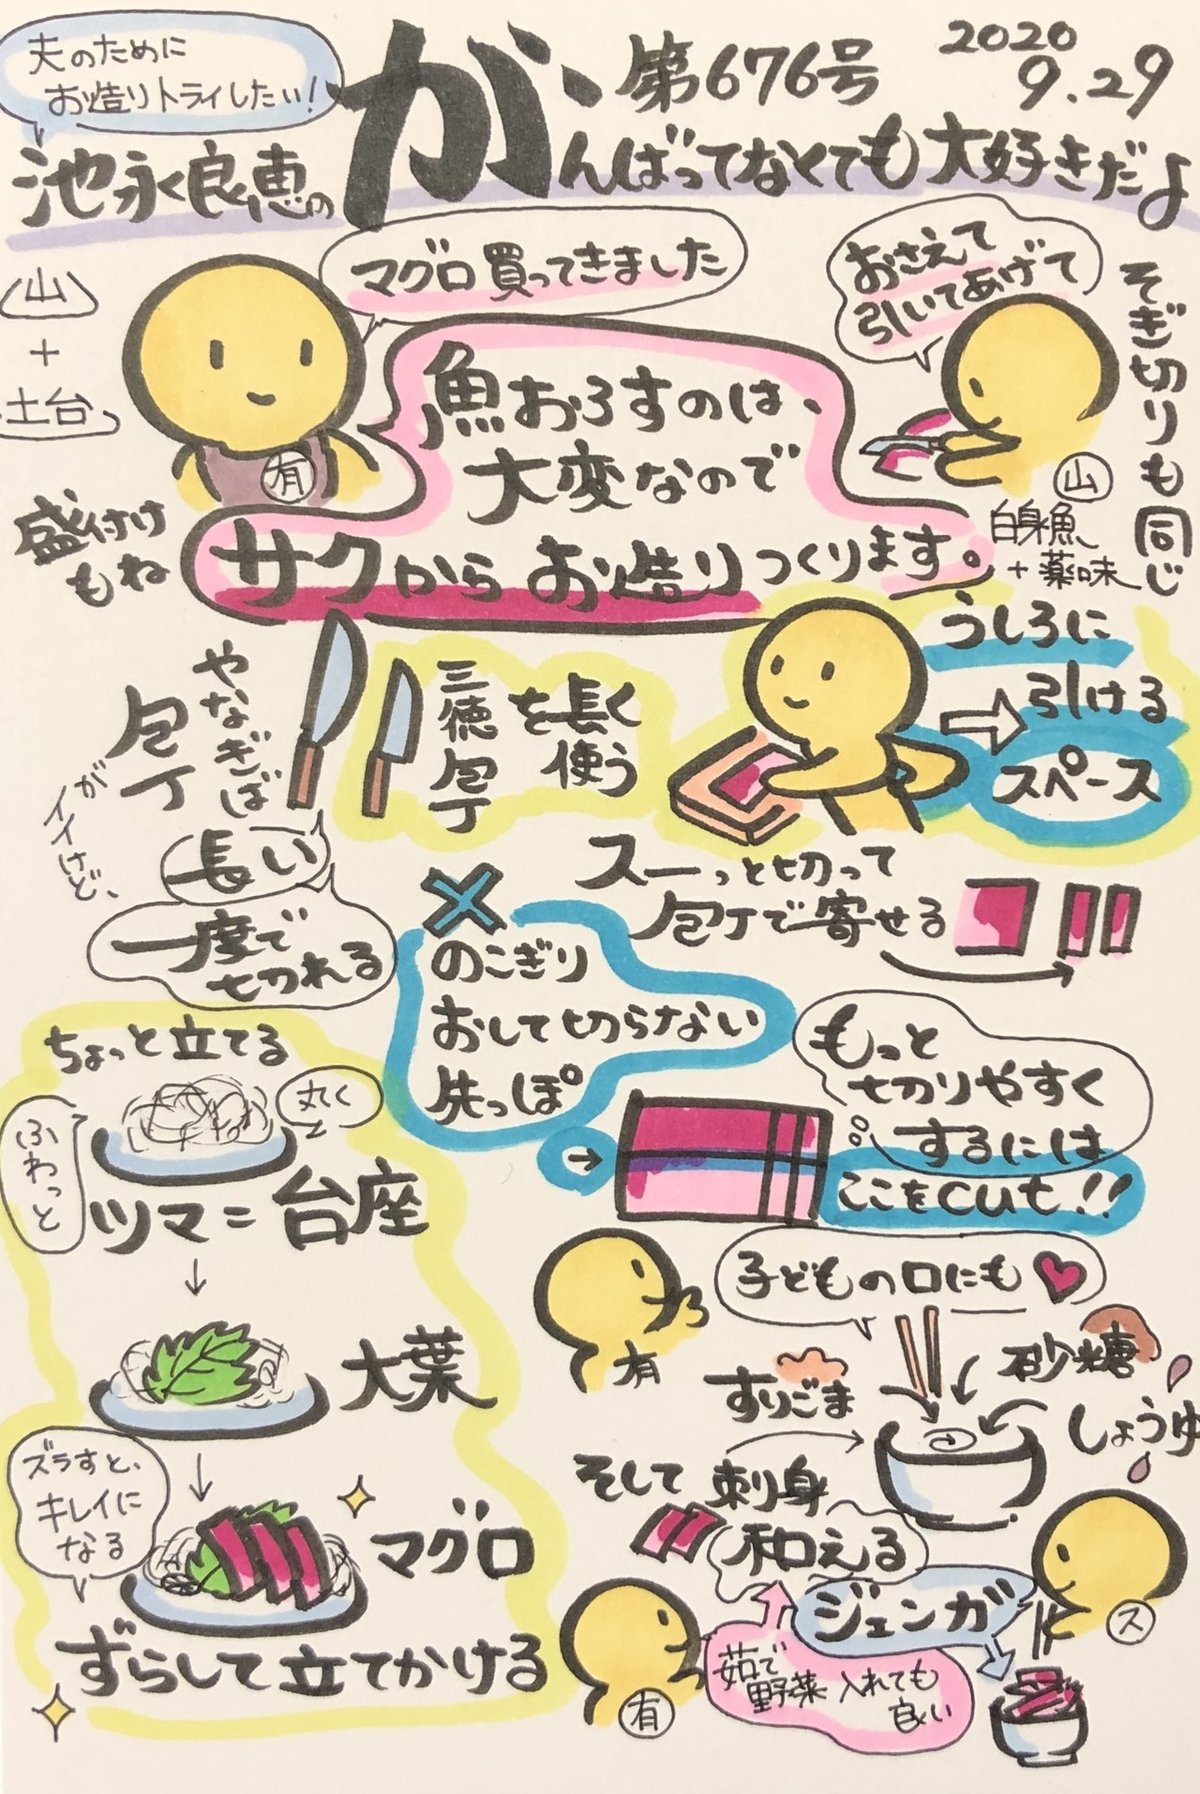 夫のために
お造りトライしたい!
第676号
2020
9.29
池永良恵の
がんばってなくても大好きだよ
マグロ買ってきました
おさえて
引いてあげて
そぎ切りも同じ
山
+
土台
盛付け
もね
有
魚おろすのは、
大変なので
サクからお造りつくります。
山
白身魚
+薬味
やなぎば
包丁
がイイけど、
三徳包丁
を長く
使う
うしろに
引ける
スペース
長い
一度で
切れる
スーっと切って
包丁で寄せる
×
のこぎり
おして切らない
先っぽ
もっと
切りやすく
するには
ここをcut!!
ちょっと立てる
丸く
ふわっと
ツマ=台座
大葉
ズラすと、
キレイに
なる
マグロ
ずらして立てかける
子どもの口にも
有
すりごま
砂糖
しょうゆ
そして刺身
和える
ジェンガ
ス
茹で
野菜入れても
良い
有